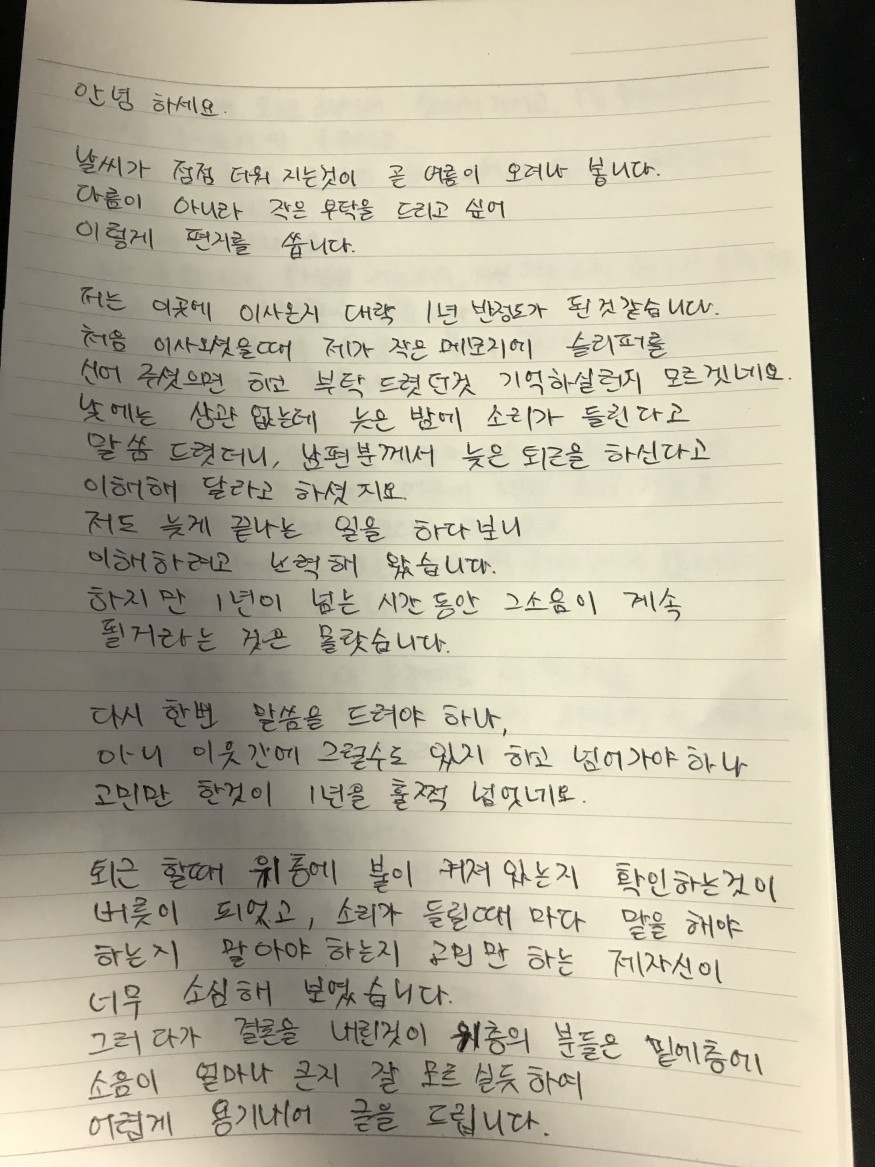 안녕 하세요.
날씨가 점점 더워 지는것이 곧 여름이 오려나 봅니다.
다름이 아니라 작은 부탁을 드리고 싶어
이렇게 편지를 씁니다.
저는 이곳에 이사온지 대략 1년 반정도가 된것같습니다.
처음 이사오셧을때 제가 작은 메모지에 슬리퍼를
신어 주셧으면 하고 부탁 드렷던것 기억하실런지 모르겟네요.
낮에는 상관 없는데 늦은 밤에 소리가 들린다고
말씀 드렷더니, 남편분께서 늦은 퇴근을 하신다고
이해해 달라고 하셧지요.
저도 늦게 끝나는 일을 하다보니
이해하려고 노력해 왔습니다.
하지만 1년이 넘는 시간동안 그소음이 계속
될거라는 것은 몰랏습니다.
다시 한번 말씀을 드려야 하나,
아니 이웃간에 그럴수도 있지 하고 넘어가야하나
고민만 한것이 1년을 훌쩍 넘엇네요.
퇴근 할때 위층에 불이 켜져 있는지 확인하는것이
버릇이 되었고, 소리가 들릴때 마다 말을 해야
하는지 말아야 하는지 고민만 하는 제자신이
너무 소심해 보였습니다.
그러다가 결론을 내린것이 위층의 분들은 밑에층에
소음이 얼마나 큰지 잘 모르실듯하여
어렵게 용기내어 글을 드립니다.